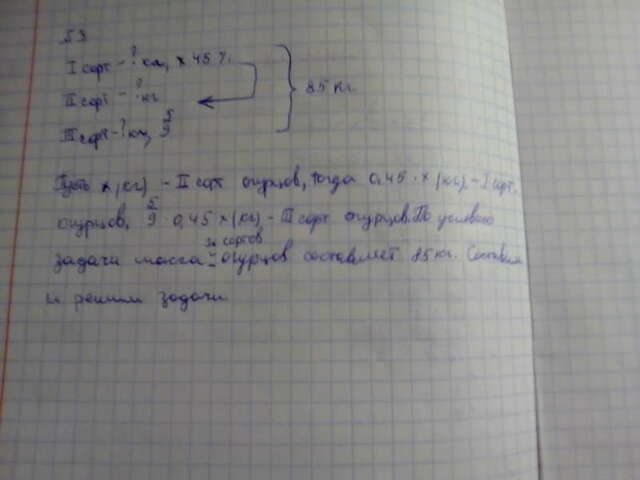 53
I сорт - ? кг, x 45 %
II сорт - ? кг
III сорт - ? кг, 5/9
85 кг
Пусть x (кг) - II сорт огурцов, тогда 0,45 · x (кг) - I сорт
огурцов, 5/9 0,45 x (кг) - III сорт огурцов. По условию
задачи масса 3х сортов огурцов составляет 85 кг. Составим
и решим задачи